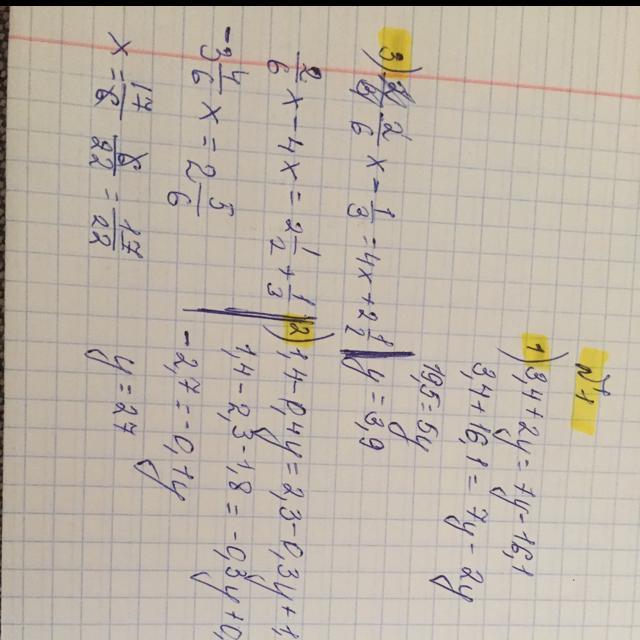 №1
1) 3,4+2y=7y-16,1
3,4+16,1=7y-2y
19,5=5y
y=3,9
2) 1,4-0,4y=2,3-0,3y+1
1,4-2,3-1,8=-0,3y+0,
-2,7=-0,1y
y=27
3) 2/6 x - 1/3 = 4x + 2 1/2
2/6 x - 4x = 2 1/2 + 1/3
-3 4/6 x = 2 5/6
x = 17/6 6/22 = 17/22